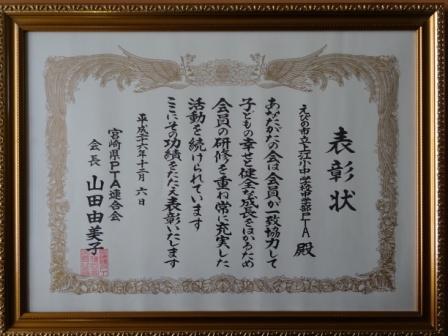 表彰状
えびの市立上江小中学校中学部PTA 殿
あなたがたの会は会員が一致協力して
子どもの幸せと健全な成長をはかるため
会員の研修を重ね常に充実した
活動を続けられています
ここにその功績をたたえ表彰いたします
平成二十六年十二月 六日
宮崎県PTA連合会
会長 山田由美子